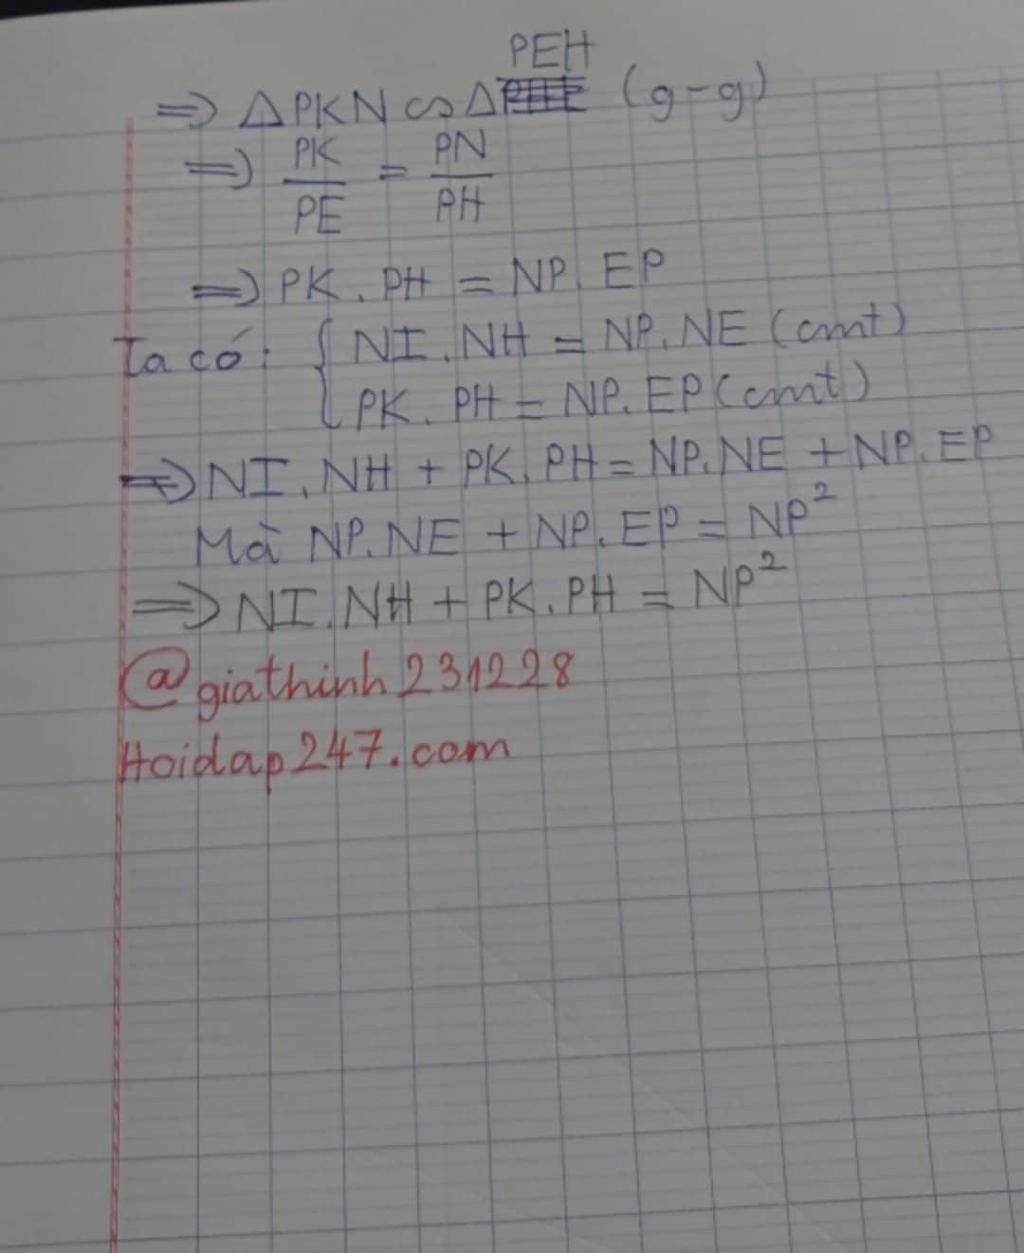 PEH
=> ΔPKN ∽ Δ (g-g)
=> PK/PE = PN/PH
=> PK.PH = NP.EP
Ta có: { NI.NH = NP.NE (cmt)
PK.PH = NP.EP (cmt)
=> NI.NH + PK.PH = NP.NE + NP.EP
Mà NP.NE + NP.EP = NP²
=> NI.NH + PK.PH = NP²
@giathinh231228
Hoidap247.com